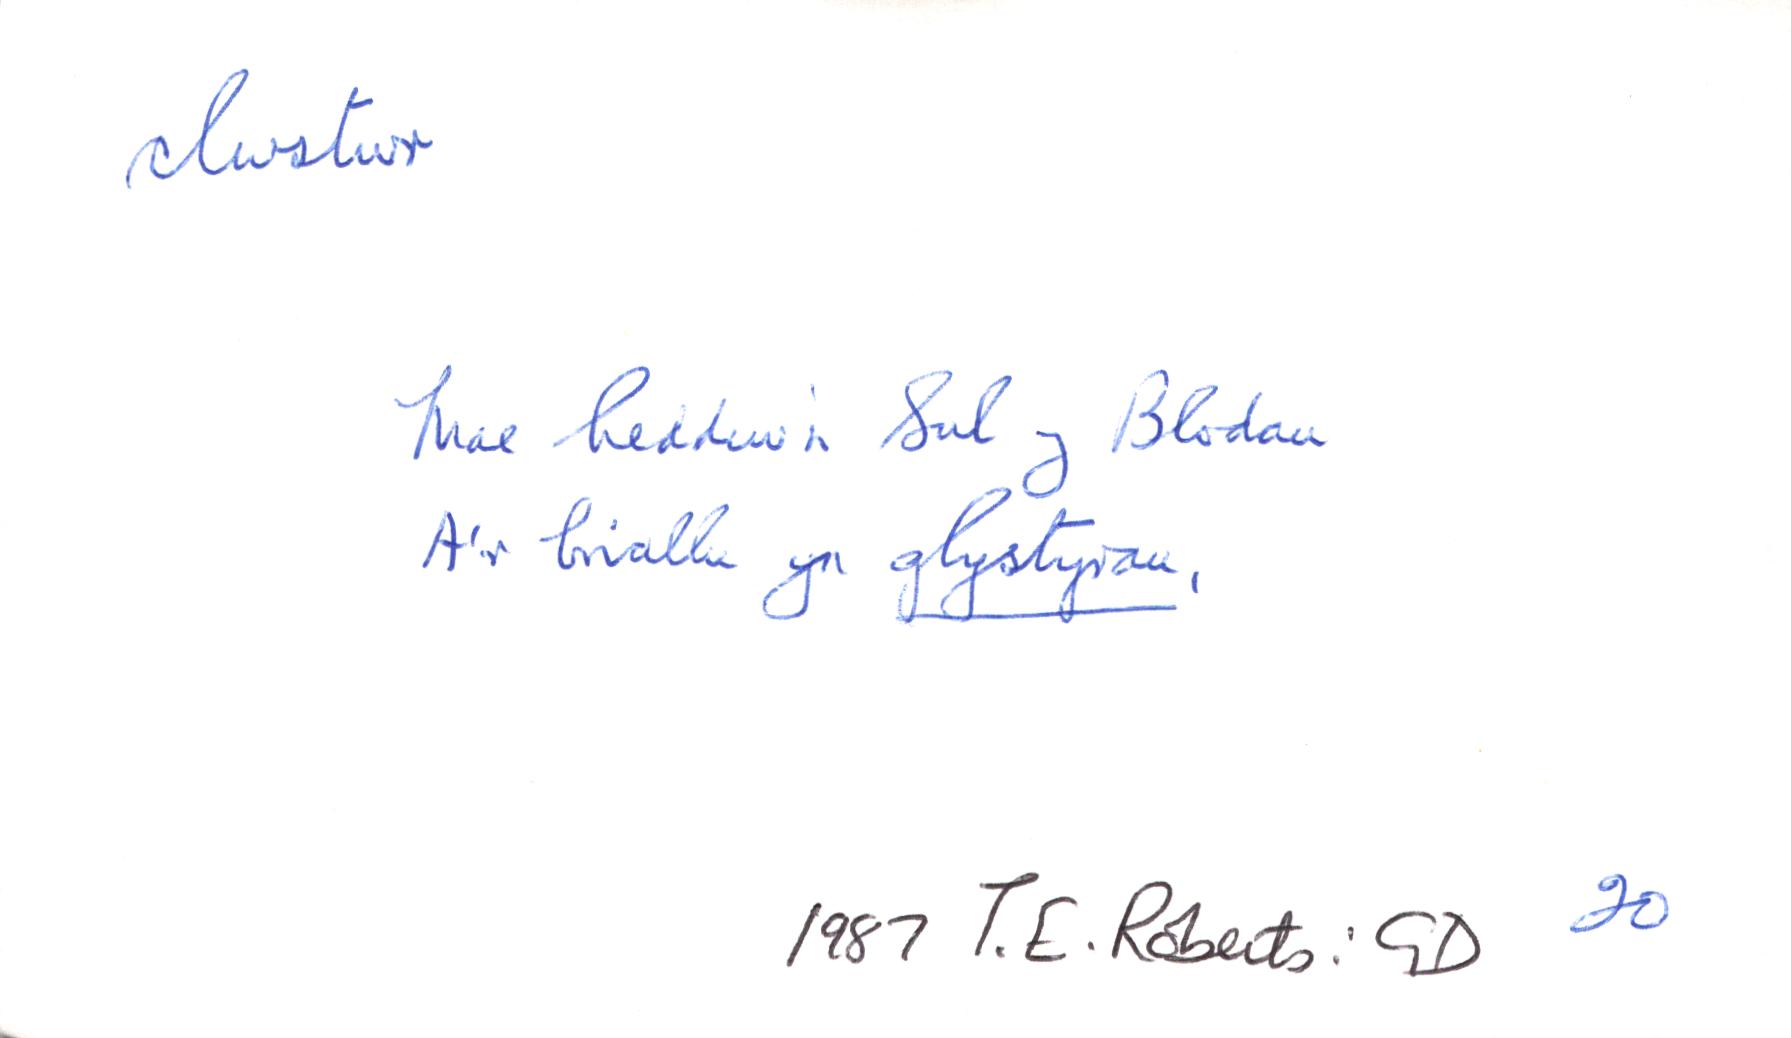 clwstwr
Mae heddiw'n Sul y Blodau
A'r briallu yn glystyrau,
1987 T.E. Roberts: GD 20